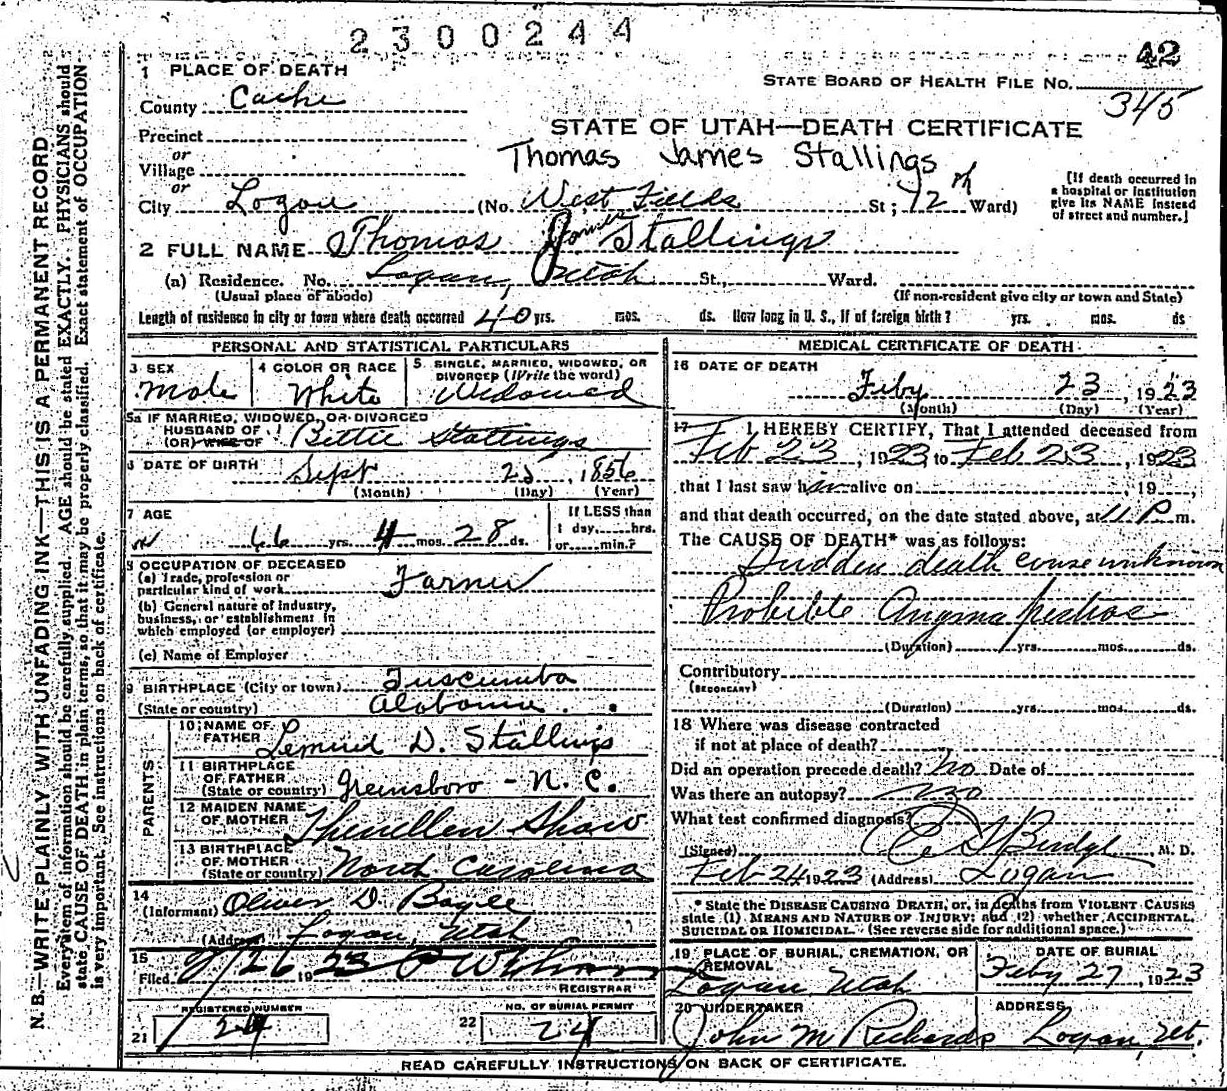 2300244
42
1 PLACE OF DEATH
STATE BOARD OF HEALTH FILE No. 345
County Cache
Precinct
or
Village
or
STATE OF UTAH—DEATH CERTIFICATE
Thomas James Stallings
City Logan (No. West Fields St; 12th Ward)
[If death occurred in
a hospital or institution
give its NAME instead
of street and number.]
2 FULL NAME Thomas James Stallings
(a) Residence. No. Logan, Utah St., Ward.
(Usual place of abode) (If non-resident give city or town and State)
Length of residence in city or town where death occurred 40 yrs. mos. ds. How long in U. S., if of foreign birth? yrs. mos. ds
PERSONAL AND STATISTICAL PARTICULARS
3 SEX
Male
4 COLOR OR RACE
White
5 SINGLE, MARRIED, WIDOWED, OR
DIVORCED (Write the word)
Widowed
5a IF MARRIED, WIDOWED, OR DIVORCED
HUSBAND OF
(OR) WIFE OF Bettie Stallings
6 DATE OF BIRTH Sept 25, 1856
(Month) (Day) (Year)
7 AGE
66 yrs. 4 mos. 28 ds.
If LESS than
1 day......hrs.
or......min.?
8 OCCUPATION OF DECEASED
(a) Trade, profession or
particular kind of work Farmer
(b) General nature of industry,
business, or establishment in
which employed (or employer)
(c) Name of Employer
9 BIRTHPLACE (City or town) Tuscumba
(State or country) Alabama
PARENTS
10 NAME OF
FATHER Lemuel D. Stallings
11 BIRTHPLACE
OF FATHER
(State or country) Greensboro - N. C.
12 MAIDEN NAME
OF MOTHER Shaw
13 BIRTHPLACE
OF MOTHER
(State or country) North Carolina
14
(Informant) Oliver D.
(Address) Logan, Utah
15
Filed 2/26 1923
REGISTRAR
REGISTERED NUMBER
21 24
NO. OF BURIAL PERMIT
22 24
MEDICAL CERTIFICATE OF DEATH
16 DATE OF DEATH
Feby 23, 1923
(Month) (Day) (Year)
17 I HEREBY CERTIFY, That I attended deceased from
Feb 23, 1923 to Feb 23, 1923
that I last saw him alive on , 19 ,
and that death occurred, on the date stated above, at 11 P. m.
The CAUSE OF DEATH* was as follows:
Sudden death cause unknown
Probible Angina pectios
(Duration) yrs. mos. ds.
Contributory
(SECONDARY)
(Duration) yrs. mos. ds.
18 Where was disease contracted
if not at place of death?
Did an operation precede death? No Date of
Was there an autopsy? No
What test confirmed diagnosis?
(Signed) M. D.
Feb 24 1923 (Address) Logan
* State the DISEASE CAUSING DEATH, or, in deaths from VIOLENT CAUSES
state (1) MEANS AND NATURE OF INJURY; and (2) whether ACCIDENTAL,
SUICIDAL OR HOMICIDAL. (See reverse side for additional space.)
19 PLACE OF BURIAL, CREMATION, OR
REMOVAL
Logan, Utah
DATE OF BURIAL
Feby 27, 1923
20 UNDERTAKER
John M Richards
ADDRESS
Logan, Ut.
READ CAREFULLY INSTRUCTIONS ON BACK OF CERTIFICATE.
N. B.—WRITE PLAINLY WITH UNFADING INK—THIS IS A PERMANENT RECORD
Every item of information should be carefully supplied. AGE should be stated EXACTLY. PHYSICIANS should
state CAUSE OF DEATH in plain terms, so that it may be properly classified. Exact statement of OCCUPATION
is very important. See instructions on back of certificate.